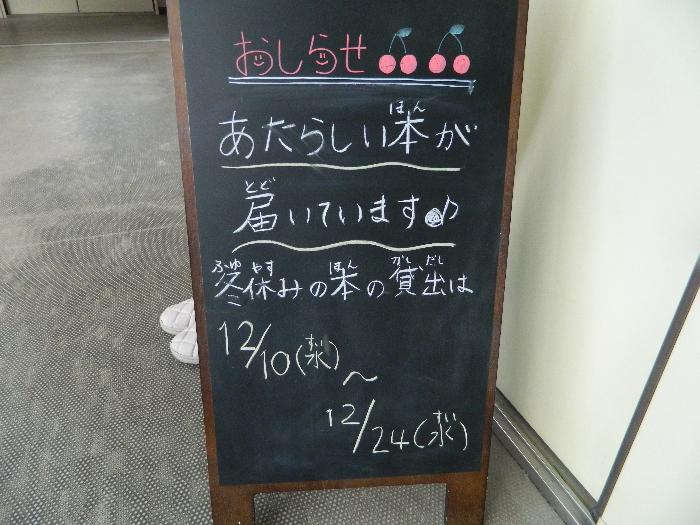 おしらせ
ほん
あたらしい本が
とど
届いています♪
ふゆ やす ほん かし だし
冬休みの本の貸出は
すい
12/10(水)
～
すい
12/24(水)